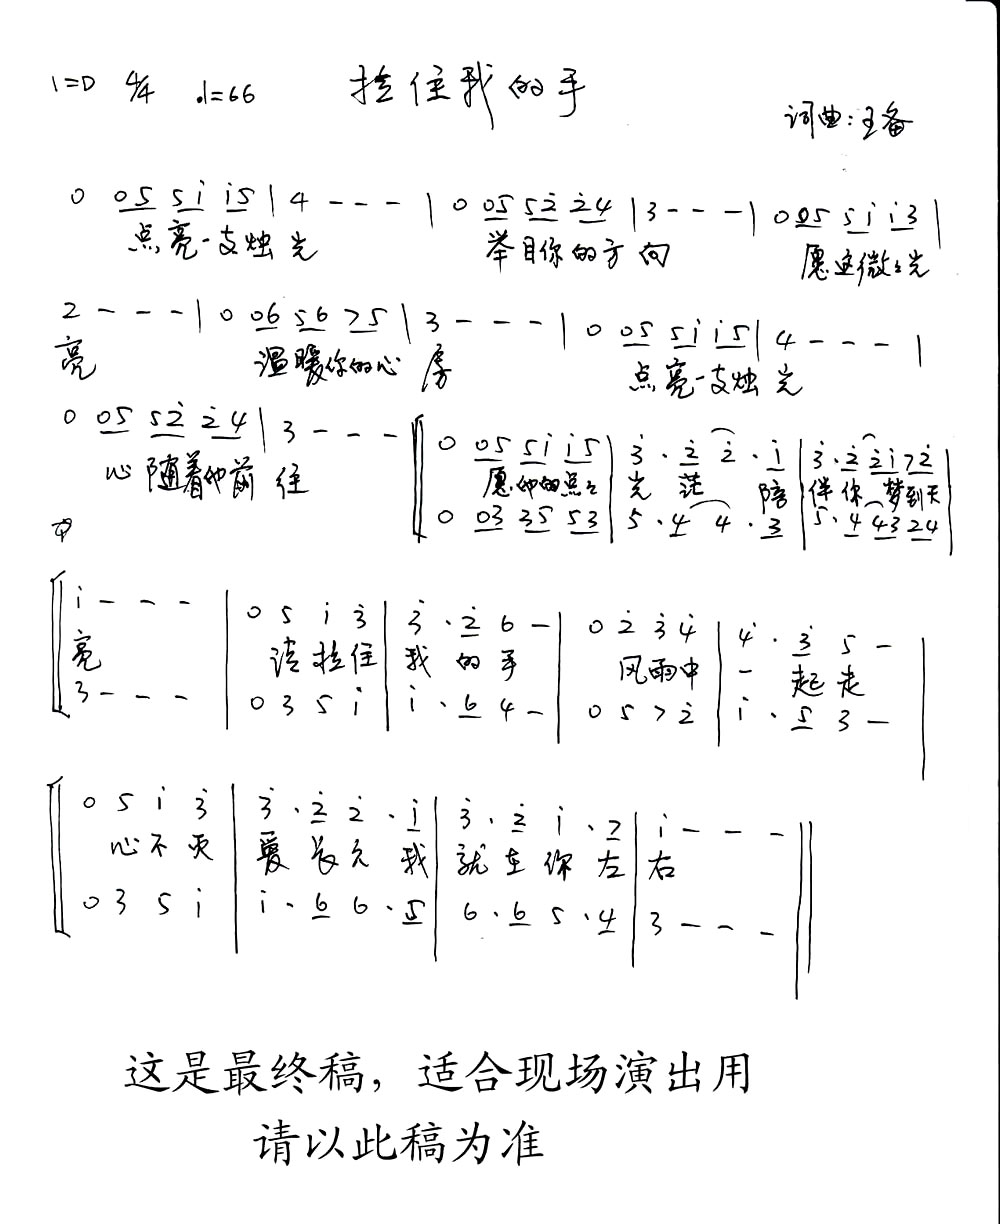 1=D 4/4 ♩=66 拉住我的手
词曲:王备
0 05 5i̇ i̇5 | 4 - - - | 0 05 52̇ 2̇4 | 3 - - - | 0 05 5i̇ i̇3 |
点亮一支烛光 举目你的方向 愿这微微光
2 - - - | 0 06 56 75 | 3 - - - | 0 05 5i̇ i̇5 | 4 - - - |
亮 温暖你的心房 点亮一支烛光
0 05 52̇ 2̇4 | 3 - - - 0 05 5i̇ i̇5 | 3̇ . 2̇ 2̇ . i̇ | 3̇ . 2̇ 2̇i̇ 72̇ |
心随着他前往 愿他的点点光茫 陪伴你梦到天
0 03 35 53 | 5 . 4 4 . 3 | 5 . 4 43 24 |
i̇ - - - | 0 5 i̇ 3̇ | 3̇ . 2̇ 6 - | 0 2̇ 3̇ 4̇ | 4̇ . 3̇ 5 - |
亮 请拉住我的手 风雨中一起走
3 - - - | 0 3 5 i̇ | i̇ . 6 4 - | 0 5 7 2̇ | i̇ . 5 3 - |
0 5 i̇ 3̇ | 3̇ . 2̇ 2̇ . i̇ | 3̇ . 2̇ i̇ . 7 | i̇ - - - ||
心不灭 爱长久 我就在你左右
0 3 5 i̇ | i̇ . 6 6 . 5 | 6 . 6 5 . 4 | 3 - - - ||
这是最终稿，适合现场演出用
请以此稿为准